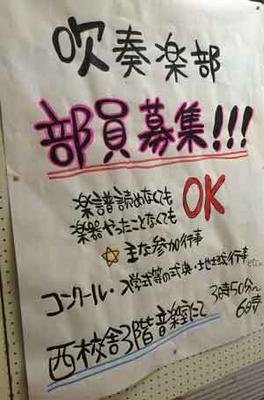 吹奏楽部
部員募集!!!
楽譜読めなくても
楽器やったことなくても OK
☆主な参加行事
コンクール・入学式等の式典・地域行事etc…
3時50分〜
6時
西校舎3階音楽室にて